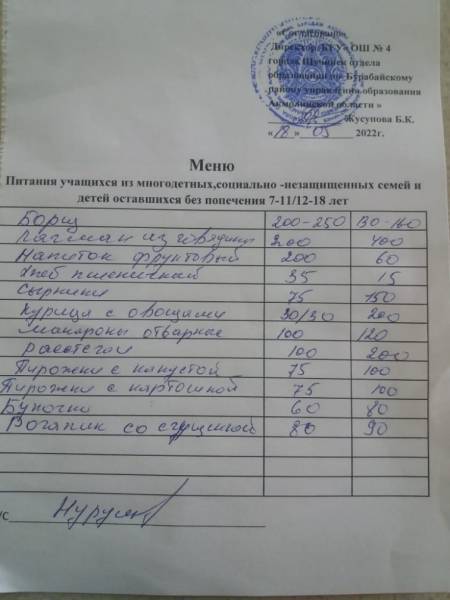 «Согласовано»
Директор КГУ «ОШ № 4
города Щучинск отдела
образования по Бурабайскому
району управления образования
Акмолинской области »
Жусупова Б.К.
« 18 » 05 2022г.
Меню
Питания учащихся из многодетных,социально -незащищенных семей и
детей оставшихся без попечения 7-11/12-18 лет
Борщ 200-250 130-160
Лагман из говядины 200 400
Напиток фруктовый 200 60
Хлеб пшеничный 35 15
Сырники 75 150
Курица с овощами 90/30 200
Макароны отварные 100 120
Расстегаи 100 200
Пирожки с капустой 75 100
Пирожки с картошкой 75 100
Булочки 60 80
Рогалик со сгущенкой 80 90